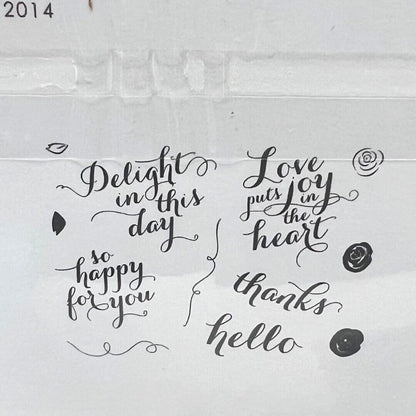 2014
Delight
in this
day
Love
puts joy
in
the
heart
so
happy
for you
thanks
hello